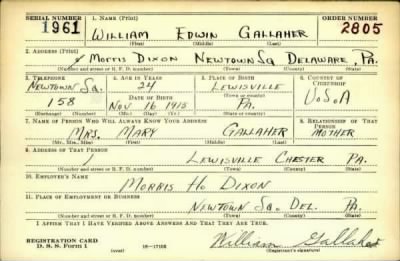 SERIAL NUMBER 1. NAME (Print) ORDER NUMBER
1961 WILLIAM EDWIN GALLAHER 2805
(First) (Middle) (Last)
2. ADDRESS (Print)
% MORRIS DIXON NEWTOWN SQ DELAWARE, PA.
(Number and street or R. F. D. number) (Town) (County) (State)
3. TELEPHONE 4. AGE IN YEARS 5. PLACE OF BIRTH 6. COUNTRY OF CITIZENSHIP
NEWTOWN SQ. 24 LEWISVILLE
DATE OF BIRTH (Town or county) U.S.A
158 NOV 16 1915 PA.
(Exchange) (Number) (Mo.) (Day) (Yr.) (State or country)
7. NAME OF PERSON WHO WILL ALWAYS KNOW YOUR ADDRESS RELATIONSHIP OF THAT PERSON
MRS. MARY GALLAHER MOTHER
(Mr., Mrs., Miss) (First) (Middle) (Last)
8. ADDRESS OF THAT PERSON
LEWISVILLE CHESTER PA.
(Number and street or R. F. D. number) (Town) (County) (State)
10. EMPLOYER'S NAME
MORRIS H. DIXON
11. PLACE OF EMPLOYMENT OR BUSINESS
NEWTOWN SQ. DEL. PA.
(Number and street or R. F. D. number) (Town) (County) (State)
I AFFIRM THAT I HAVE VERIFIED ABOVE ANSWERS AND THAT THEY ARE TRUE.
REGISTRATION CARD
D. S. S. Form 1 (over) 16—17105 William Gallaher
(Registrant's signature)